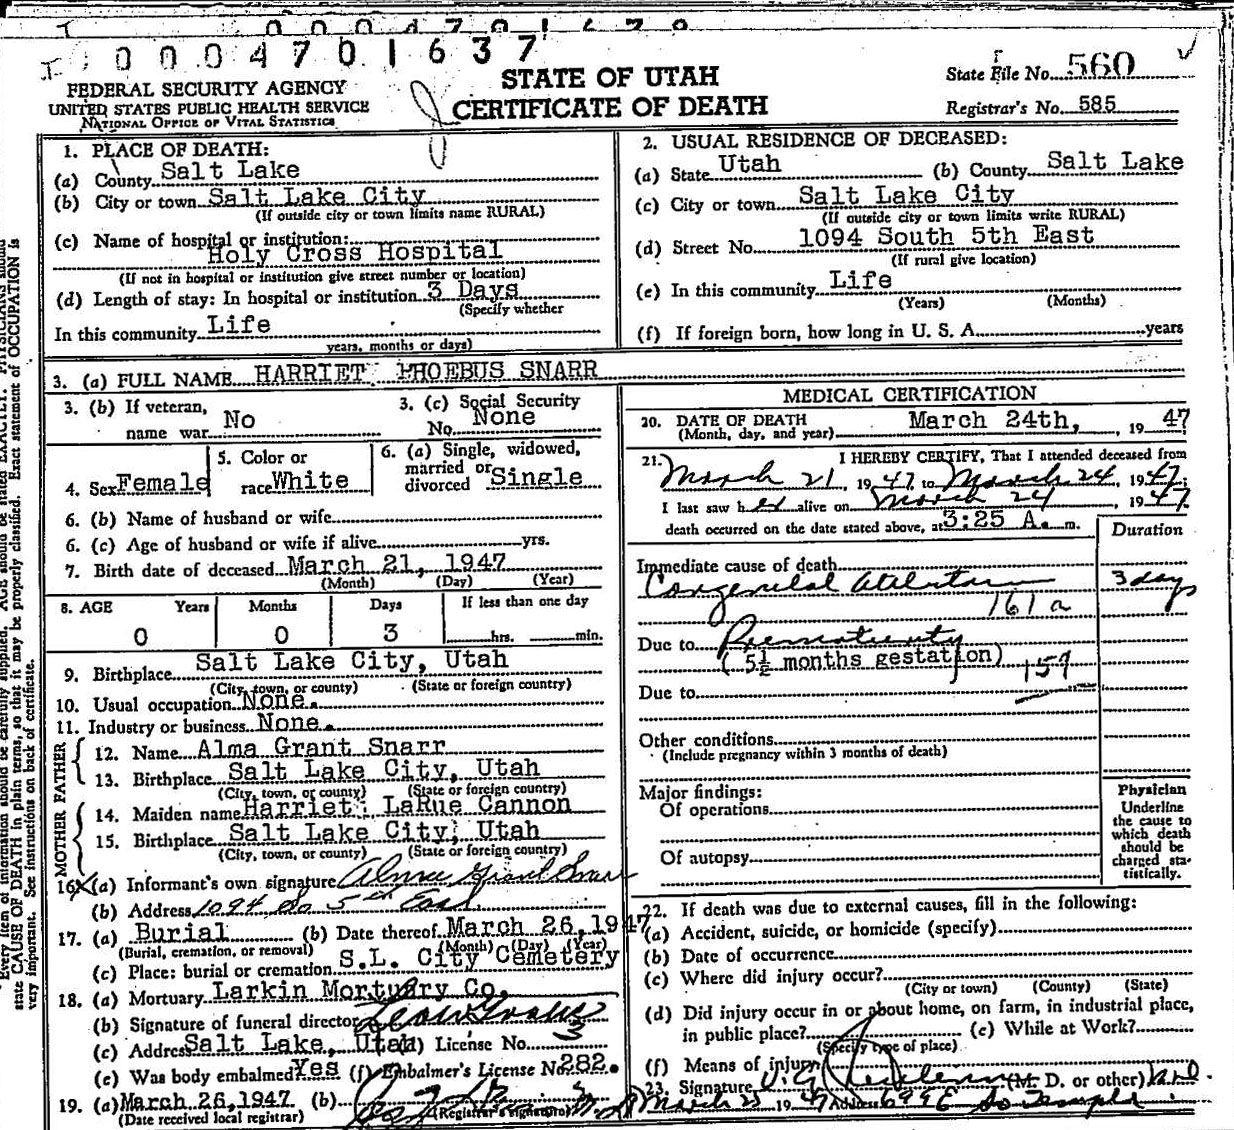 0004701637
FEDERAL SECURITY AGENCY
UNITED STATES PUBLIC HEALTH SERVICE
NATIONAL OFFICE OF VITAL STATISTICS
STATE OF UTAH
CERTIFICATE OF DEATH
State File No. 560
Registrar's No. 585
1. PLACE OF DEATH:
(a) County Salt Lake
(b) City or town Salt Lake City
(If outside city or town limits name RURAL)
(c) Name of hospital or institution:
Holy Cross Hospital
(If not in hospital or institution give street number or location)
(d) Length of stay: In hospital or institution 3 Days
(Specify whether
In this community Life
years, months or days)
2. USUAL RESIDENCE OF DECEASED:
(a) State Utah (b) County Salt Lake
(c) City or town Salt Lake City
(If outside city or town limits write RURAL)
(d) Street No. 1094 South 5th East
(If rural give location)
(e) In this community Life
(Years) (Months)
(f) If foreign born, how long in U. S. A. years
3. (a) FULL NAME HARRIET PHOEBUS SNARR
3. (b) If veteran, name war No
3. (c) Social Security No. None
4. Sex Female
5. Color or race White
6. (a) Single, widowed, married or divorced Single
6. (b) Name of husband or wife
6. (c) Age of husband or wife if alive yrs.
7. Birth date of deceased March 21, 1947
(Month) (Day) (Year)
8. AGE Years Months Days If less than one day
0 0 3 hrs. min.
9. Birthplace Salt Lake City, Utah
(City, town, or county) (State or foreign country)
10. Usual occupation None.
11. Industry or business None.
FATHER
12. Name Alma Grant Snarr
13. Birthplace Salt Lake City, Utah
(City, town, or county) (State or foreign country)
MOTHER
14. Maiden name Harriet LaRue Cannon
15. Birthplace Salt Lake City, Utah
(City, town, or county) (State or foreign country)
16. (a) Informant's own signature Alma Grant Snarr
(b) Address 1094 So 5th East
17. (a) Burial (b) Date thereof March 26, 1947
(Burial, cremation, or removal) (Month) (Day) (Year)
(c) Place: burial or cremation S.L. City Cemetery
18. (a) Mortuary Larkin Mortuary Co.
(b) Signature of funeral director
(c) Address Salt Lake, Utah (d) License No. 3
(e) Was body embalmed Yes (f) Embalmer's License No. 282.
19. (a) March 26, 1947 (b)
(Date received local registrar) (Registrar's signature)
MEDICAL CERTIFICATION
20. DATE OF DEATH March 24th, 1947
(Month, day, and year)
21. I HEREBY CERTIFY, That I attended deceased from
March 21, 1947 to March 24, 1947;
I last saw her alive on March 24, 1947
death occurred on the date stated above, at 3:25 A. m.
Duration
Immediate cause of death
Congenital Atelectasis 3 days
161a
Due to Prematurity
(5½ months gestation) 159
Due to
Other conditions
(Include pregnancy within 3 months of death)
Major findings:
Of operations
Of autopsy
Physician
Underline
the cause to
which death
should be
charged sta-
tistically.
22. If death was due to external causes, fill in the following:
(a) Accident, suicide, or homicide (specify)
(b) Date of occurrence
(c) Where did injury occur?
(City or town) (County) (State)
(d) Did injury occur in or about home, on farm, in industrial place,
in public place? (e) While at Work?
(Specify type of place)
(f) Means of injury
23. Signature (M. D. or other) M.D.
March 25 1947 Address 699 E So Temple